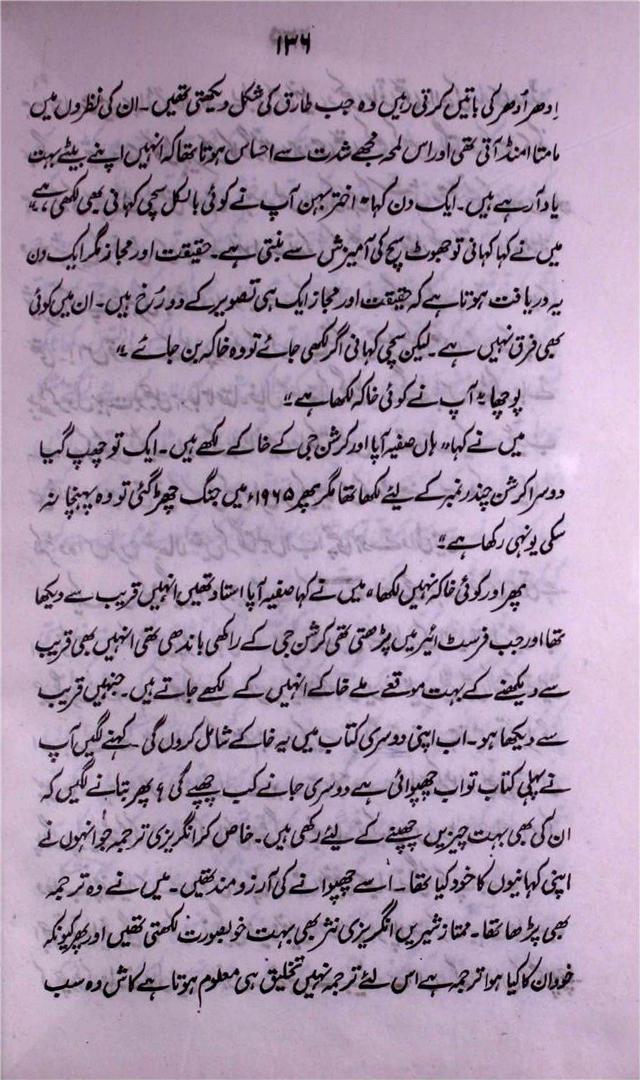 ۱۳۶
اِدھر اُدھر کی باتیں کرتی رہیں وہ جب طارق کی شکل دیکھتی تھیں۔ ان کی نظروں میں
مامتا امنڈ آتی تھی اور اس لمحہ مجھے شدت سے احساس ہوتا تھا کہ انہیں اپنے بیٹے بہت
یاد آ رہے ہیں۔ ایک دن کہا "اختر بہن آپ نے کوئی بالکل سچی کہانی بھی لکھی ہے"
میں نے کہا کہانی تو جھوٹ سچ کی آمیزش سے بنتی ہے۔ حقیقت اور مجاز مگر ایک دن
یہ دریافت ہوتا ہے کہ حقیقت اور مجاز ایک ہی تصویر کے دو رُخ ہیں۔ ان میں کوئی
بھی فرق نہیں ہے۔ لیکن سچی کہانی اگر لکھی جائے تو وہ خاکہ بن جائے"
پوچھا "آپ نے کوئی خاکہ لکھا ہے"
میں نے کہا "ہاں صفیہ آپا اور کرشن جی کے خاکے لکھے ہیں۔ ایک تو چھپ گیا
دوسرا کرشن چندر نمبر کے لئے لکھا تھا مگر پھر ۱۹۶۵ء میں جنگ چھڑ گئی تو وہ پہنچا نہ
سکی یونہی رکھا ہے"
پھر اور کوئی خاکہ نہیں لکھا" میں نے کہا صفیہ آپا استاد تھیں انہیں قریب سے دیکھا
تھا اور جب فرسٹ ائیر میں پڑھتی تھی کرشن جی کے راکھی باندھی تھی انہیں بھی قریب
سے دیکھنے کے بہت موقعے ملے خاکے انہیں کے لکھے جاتے ہیں۔ جنہیں قریب
سے دیکھا ہو۔ اب اپنی دوسری کتاب میں یہ خاکے شامل کروں گی۔ کہنے لگیں آپ
نے پہلی کتاب تو اب چھپوائی ہے دوسری جانے کب چھپے گی؟ پھر بتانے لگیں کہ
ان کی بھی بہت چیزیں چھپنے کے لئے رکھی ہیں۔ خاص کر انگریزی ترجمہ جو انہوں نے
اپنی کہانیوں کا خود کیا تھا۔ اُسے چھپوانے کی آرزومند تھیں۔ میں نے وہ ترجمہ
بھی پڑھا تھا۔ ممتاز شیریں انگریزی نثر بھی بہت خوبصورت لکھتی تھیں اور پھر کیونکہ
خود ان کا کیا ہوا ترجمہ ہے اس لئے ترجمہ نہیں تخلیق ہی معلوم ہوتا ہے کاش وہ سب